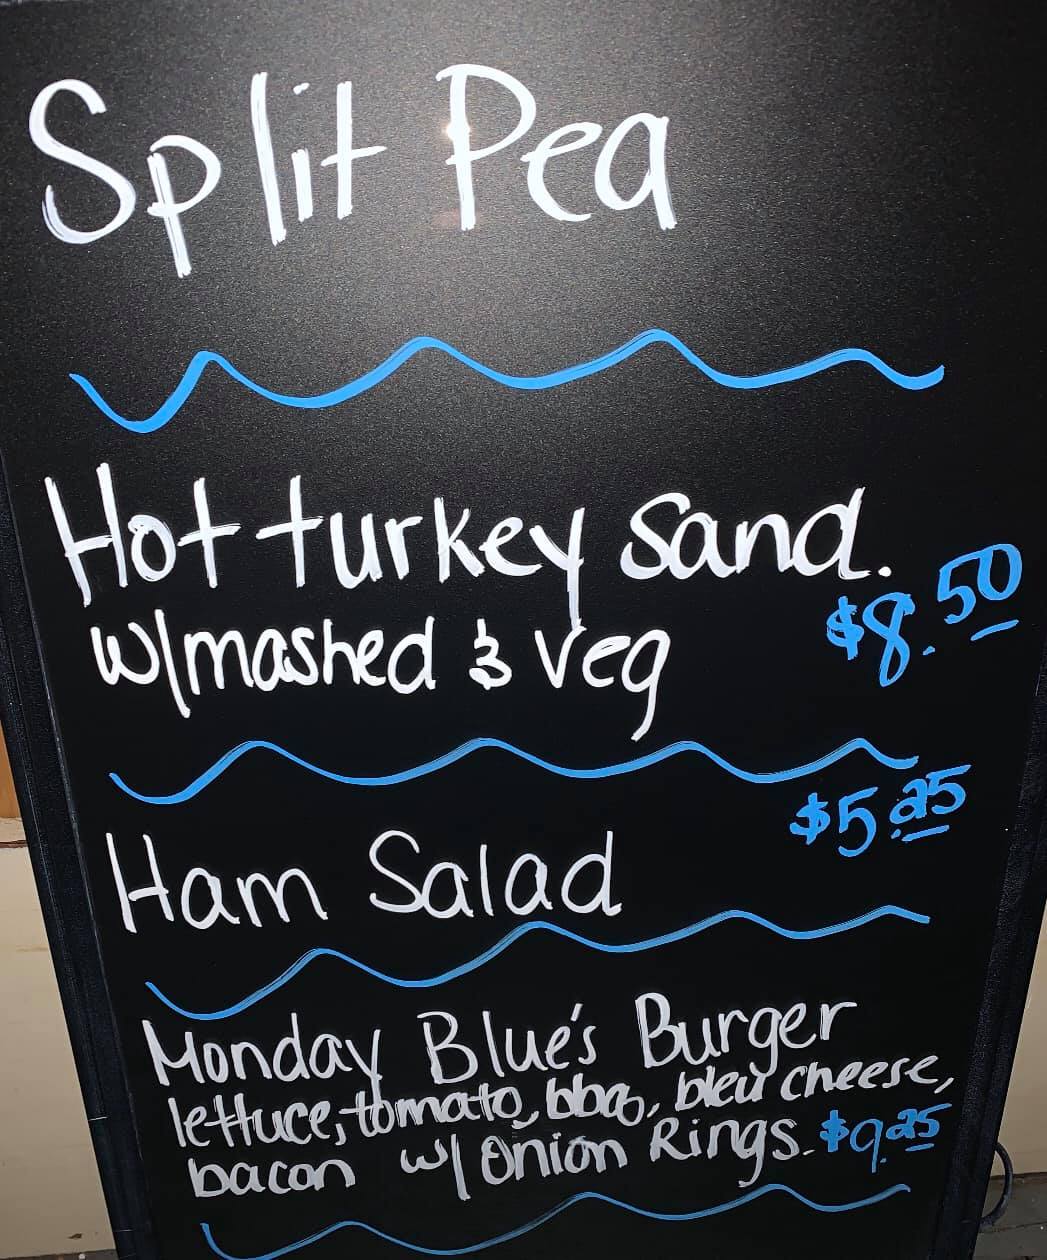 Split Pea
Hot turkey Sand.
$8.50
w/mashed & veg
$5.25
Ham Salad
Monday Blue's Burger
lettuce, tomato, bbq, bleu cheese,
bacon w/ Onion Rings. $9.25